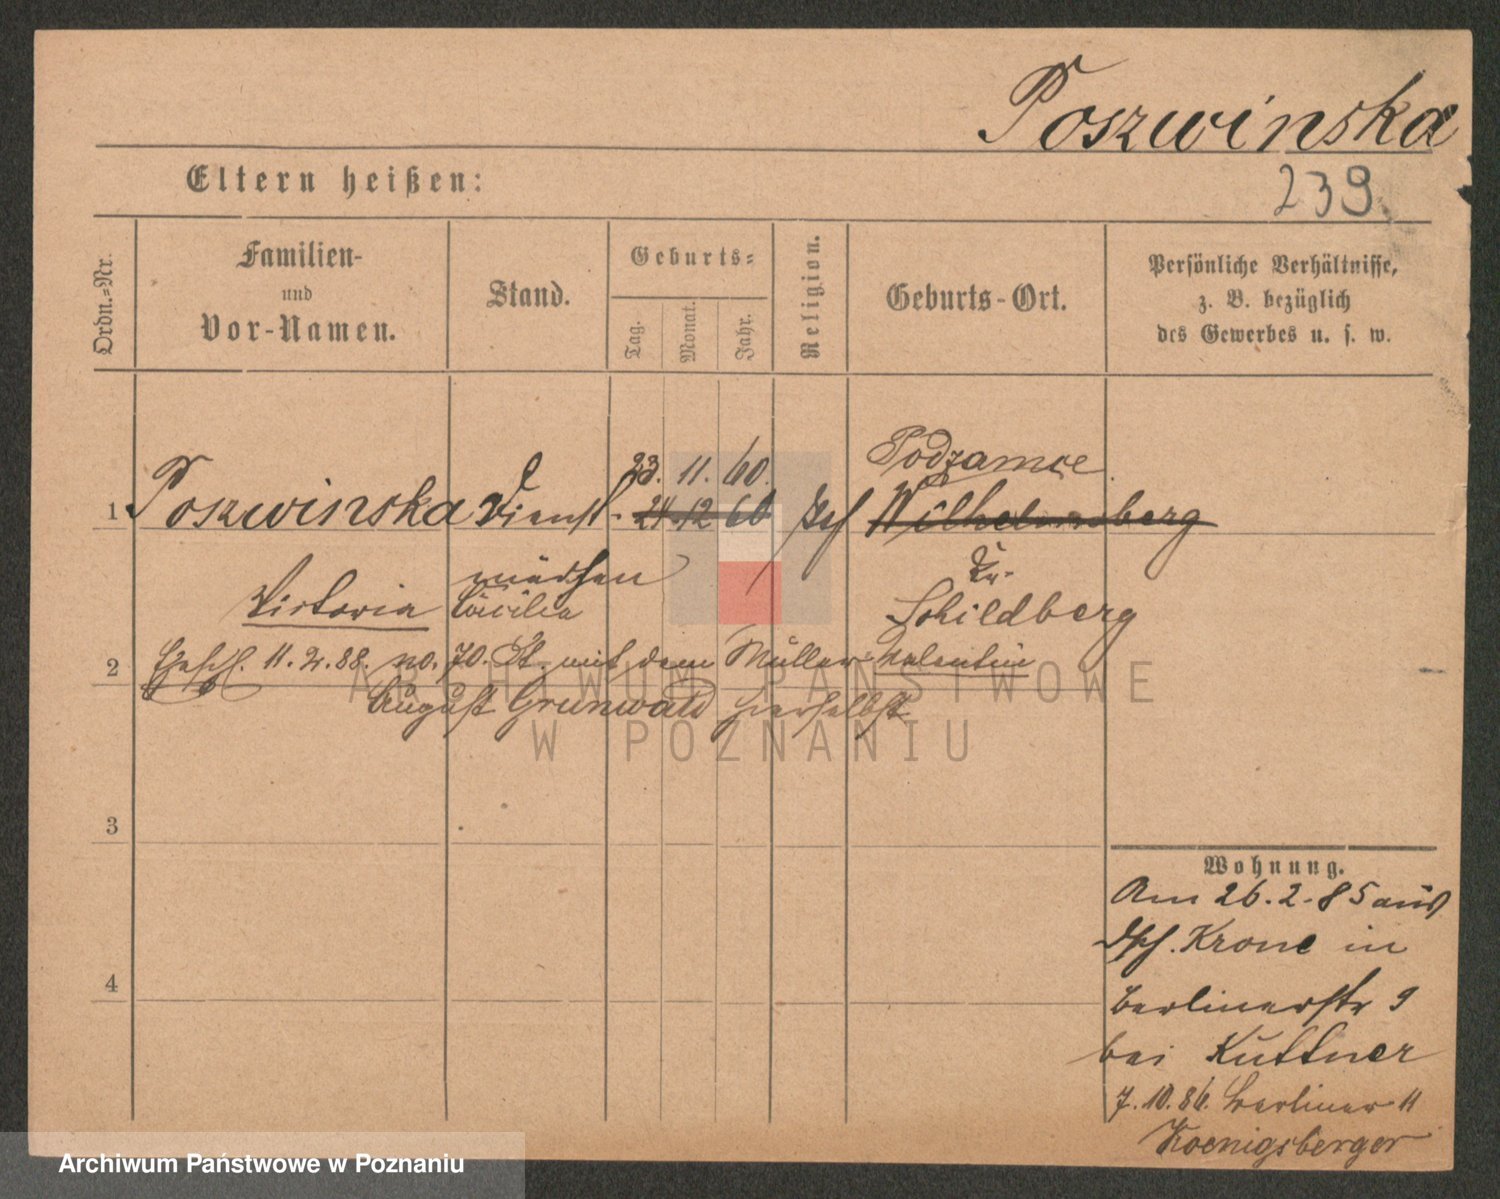 Poszwinska
Eltern heißen:
239
Ordn.=Nr.
Familien-
und
Vor-Namen.
Stand.
Geburts=
Tag.
Monat.
Jahr.
Religion.
Geburts-Ort.
Persönliche Verhältnisse,
z. B. bezüglich
des Gewerbes u. s. w.
23. 11. 60. Podzamce
1 Poszwinska Dienst- 24 12 60 Wilhelmsberg
mädchen Kr.
Victoria Cäcilia Schildberg
2 Ehesch. 11. 2. 88. No. 70. St. mit dem Müller Valentin
August Grunwald hierselbst
ARCHIWUM PAŃSTWOWE
W POZNANIU
3
4
Wohnung.
Am 26.2.85 aus
Krone in
Berlinerstr 9
bei Kuttner
7.10.86. Berliner 11
Koenigsberger
Archiwum Państwowe w Poznaniu